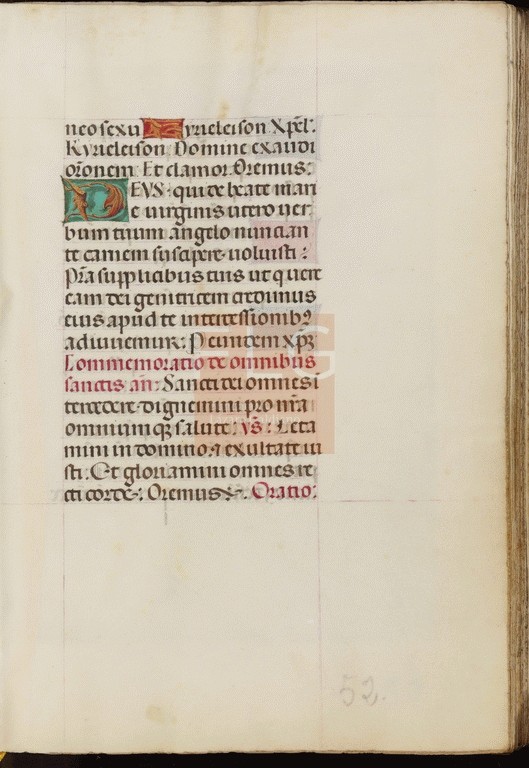 neo sexu Kyrieleison Xp̄el'.
Kyrieleison. Domine exaudi
or̄onem. Et clamor. Oremus.
DEVS. qui de beate mari
e virginis utero ver
bum tuum angelo nuncian
te carnem suscipere. voluisti:
Pr̄a supplicibus tuis ut q uere
eam dei genitricem credimus
eius apud te intercessionibꝯ
adiuuemur. P eundem xp̄ꝫ
Commemoratio de omnibus
sanctis an̄: Sancti dei omnes i
tercedere. dignemini pro nr̄a
omniumqꝫ salute: vs̄: Leta
mini in domino. et exultate iu
sti: Et gloriamini omnes re
cti corde. Oremus. Oratio:
FLG
52.